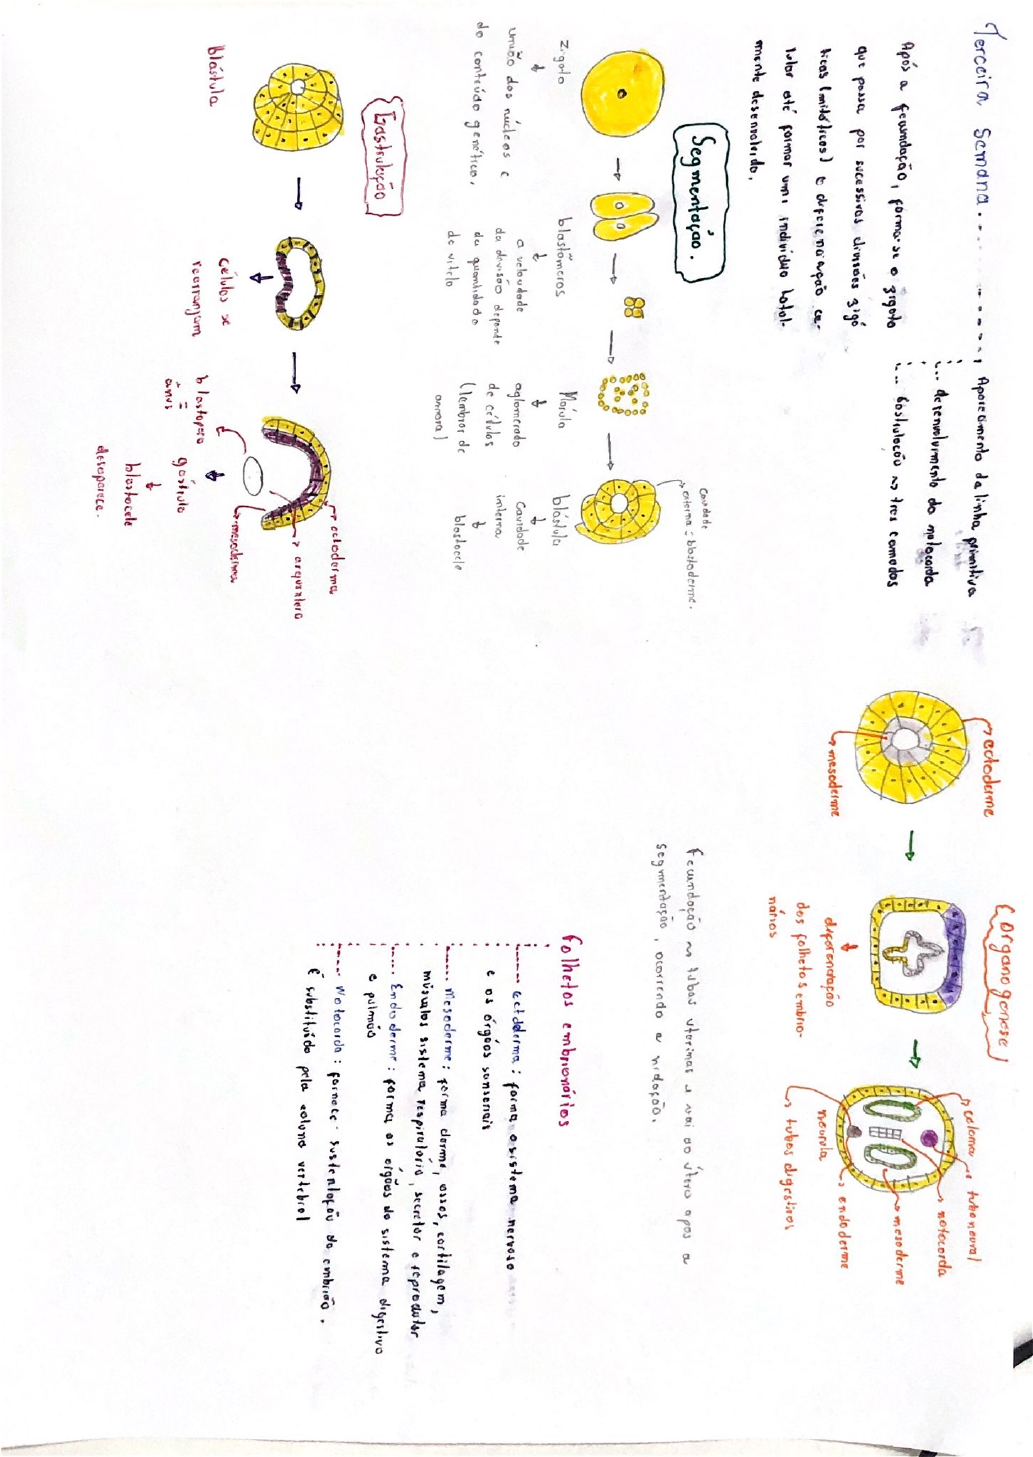 Terceira Semana
Aparecimento da linha primitiva
desenvolvimento da notocorda
Gastrulação as tres camadas
Após a fecundação, forma-se o zigoto
que passa por sucessivas divisões zigó
ticas (mitóticas) e diferenciação ce-
lular até formar um indivíduo total-
mente desenvolvido.
Segmentação.
zigoto
união dos núcleos e
do conteúdo genético,
blastômeros
a velocidade
da devisão depende
da quantidade
de vitelo
Mórula
aglomerado
de células
(lembrar de
amora)
blástula
Cavidade
interna
blastocele
Cavidade
externa = blastoderme.
Gastrulação
blástula
Células se
rearranjam
blastoporo
=
ânus
gástrula
blastocele
desaparece.
ectoderma
arquntero
mesoderma
Organogenese
ectoderme
mesoderme
diferenciação
dos folhetos embrio-
nários
celoma
tubo neural
notocorda
mesoderme
endoderme
neurula
tubos digestivos
Fecundação as tubas uterinas a vai ao útero apos a
segmentação, ocorrendo a nidação.
Folhetos embrionários
ectoderma: forma o sistema nervoso
e os órgãos sensoriais
Mesoderme: forma derme, ossos, cartilagem,
músculos sistema respiratório, secretor e reprodutor
Endoderme: forma os orgãos do sistema digestivo
e pulmão
Notocorda: fornece sustentação do embrião.
É substituído pela coluna vertebral